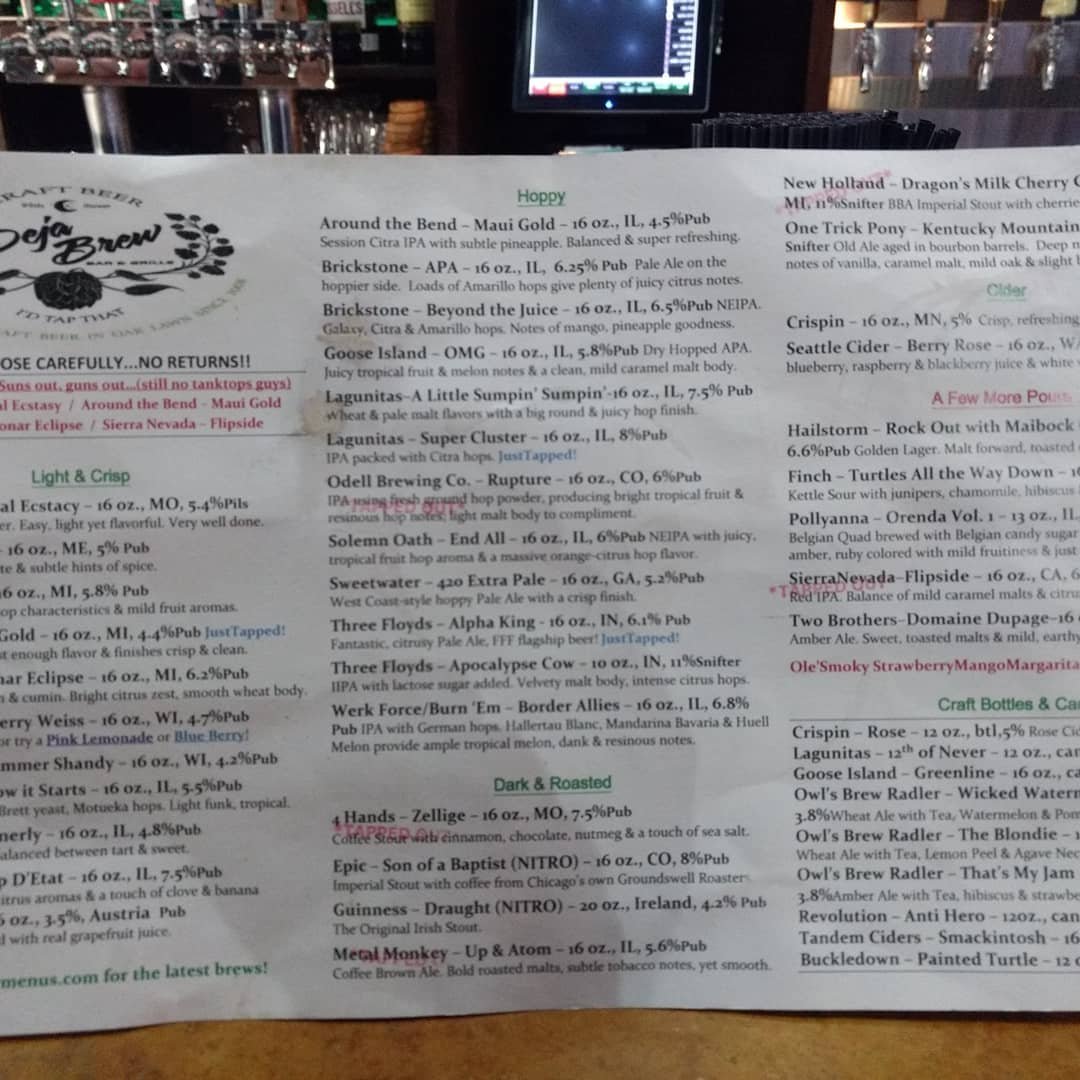 CRAFT BEER
Deja
Brew
BAR & GRILLE
I'D TAP THAT
CRAFT BEER IN OAK LAWN SINCE
OSE CAREFULLY...NO RETURNS!!
Suns out, guns out...(still no tanktops guys)
al Ecstasy / Around the Bend - Maui Gold
onar Eclipse / Sierra Nevada - Flipside
Light & Crisp
al Ecstacy - 16 oz., MO, 5.4%Pils
er. Easy, light yet flavorful. Very well done.
- 16 oz., ME, 5% Pub
te & subtle hints of spice.
6 oz., MI, 5.8% Pub
op characteristics & mild fruit aromas.
Gold - 16 oz., MI, 4.4%Pub JustTapped!
st enough flavor & finishes crisp & clean.
nar Eclipse - 16 oz., MI, 6.2%Pub
n & cumin. Bright citrus zest, smooth wheat body.
erry Weiss - 16 oz., WI, 4.7%Pub
or try a Pink Lemonade or Blue Berry!
mmer Shandy - 16 oz., WI, 4.2%Pub
ow it Starts - 16 oz., IL, 5.5%Pub
Brett yeast, Motueka hops. Light funk, tropical.
nerly - 16 oz., IL, 4.8%Pub
alanced between tart & sweet.
p D'Etat - 16 oz., IL, 7.5%Pub
itrus aromas & a touch of clove & banana
6 oz., 3.5%, Austria Pub
d with real grapefruit juice.
menus.com for the latest brews!
Hoppy
Around the Bend - Maui Gold - 16 oz., IL, 4.5%Pub
Session Citra IPA with subtle pineapple. Balanced & super refreshing.
Brickstone - APA - 16 oz., IL, 6.25% Pub Pale Ale on the
hoppier side. Loads of Amarillo hops give plenty of juicy citrus notes.
Brickstone - Beyond the Juice - 16 oz., IL, 6.5%Pub NEIPA.
Galaxy, Citra & Amarillo hops. Notes of mango, pineapple goodness.
Goose Island - OMG - 16 oz., IL, 5.8%Pub Dry Hopped APA.
Juicy tropical fruit & melon notes & a clean, mild caramel malt body.
Lagunitas-A Little Sumpin' Sumpin'-16 oz., IL, 7.5% Pub
Wheat & pale malt flavors with a big round & juicy hop finish.
Lagunitas - Super Cluster - 16 oz., IL, 8%Pub
IPA packed with Citra hops. JustTapped!
Odell Brewing Co. - Rupture - 16 oz., CO, 6%Pub
IPA using fresh ground hop powder, producing bright tropical fruit &
*TAPPED OUT*
resinous hop notes; light malt body to compliment.
Solemn Oath - End All - 16 oz., IL, 6%Pub NEIPA with juicy,
tropical fruit hop aroma & a massive orange-citrus hop flavor.
Sweetwater - 420 Extra Pale - 16 oz., GA, 5.2%Pub
West Coast-style hoppy Pale Ale with a crisp finish.
Three Floyds - Alpha King - 16 oz., IN, 6.1% Pub
Fantastic, citrusy Pale Ale, FFF flagship beer! JustTapped!
Three Floyds - Apocalypse Cow - 10 oz., IN, 11%Snifter
IIPA with lactose sugar added. Velvety malt body, intense citrus hops.
Werk Force/Burn 'Em - Border Allies - 16 oz., IL, 6.8%
Pub IPA with German hops. Hallertau Blanc, Mandarina Bavaria & Huell
Melon provide ample tropical melon, dank & resinous notes.
Dark & Roasted
4 Hands - Zellige - 16 oz., MO, 7.5%Pub
*TAPPED OUT
Coffee Stout with cinnamon, chocolate, nutmeg & a touch of sea salt.
Epic - Son of a Baptist (NITRO) - 16 oz., CO, 8%Pub
Imperial Stout with coffee from Chicago's own Groundswell Roasters.
Guinness - Draught (NITRO) - 20 oz., Ireland, 4.2% Pub
The Original Irish Stout.
Metal Monkey - Up & Atom - 16 oz., IL, 5.6%Pub
Coffee Brown Ale. Bold roasted malts, subtle tobacco notes, yet smooth.
New Holland - Dragon's Milk Cherry
MI, 11%Snifter BBA Imperial Stout with cherrie
*TAPPED OUT*
One Trick Pony - Kentucky Mountain
Snifter Old Ale aged in bourbon barrels. Deep
notes of vanilla, caramel malt, mild oak & slight
Cider
Crispin - 16 oz., MN, 5% Crisp, refreshing
Seattle Cider - Berry Rose - 16 oz., WA
blueberry, raspberry & blackberry juice & white
A Few More Pours
Hailstorm - Rock Out with Maibock
6.6%Pub Golden Lager. Malt forward, toasted
Finch - Turtles All the Way Down - 1
Kettle Sour with junipers, chamomile, hibiscus
Pollyanna - Orenda Vol. 1 - 13 oz., IL
Belgian Quad brewed with Belgian candy sugar
amber, ruby colored with mild fruitiness & just
SierraNevada-Flipside - 16 oz., CA, 6
*TAPPED OUT
Red IPA. Balance of mild caramel malts & citru
Two Brothers-Domaine Dupage-16
Amber Ale. Sweet, toasted malts & mild, earthy
Ole'Smoky StrawberryMangoMargarita
Craft Bottles & Ca
Crispin - Rose - 12 oz., btl,5% Rose Cid
Lagunitas - 12th of Never - 12 oz., can
Goose Island - Greenline - 16 oz., ca
Owl's Brew Radler - Wicked Waterm
3.8%Wheat Ale with Tea, Watermelon & Pom
Owl's Brew Radler - The Blondie - 1
Wheat Ale with Tea, Lemon Peel & Agave Nec
Owl's Brew Radler - That's My Jam
3.8%Amber Ale with Tea, hibiscus & strawbe
Revolution - Anti Hero - 12oz., can
Tandem Ciders - Smackintosh - 16
Buckledown - Painted Turtle - 12